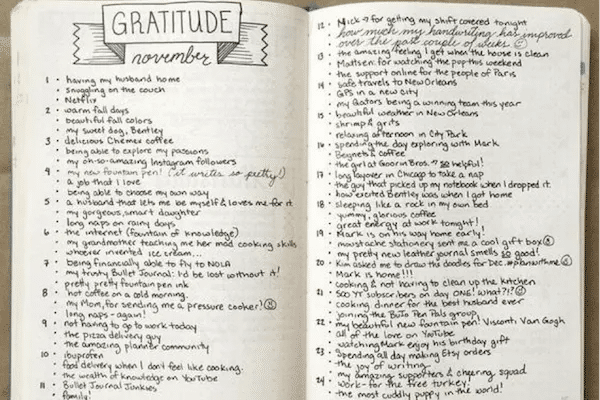 GRATITUDE
november
1 • having my husband home
• snuggling on the couch
• Netflix
2 • warm fall days
• beautiful fall colors
• my sweet dog, Bentley
3 • delicious Chemex coffee
• being able to explore my passions
• my oh-so-amazing Instagram followers
4 • my new fountain pen! (it writes so pretty!)
• a job that I love
• being able to choose my own way
5 • a husband that lets me be myself & loves me for it
• my gorgeous, smart daughter
• long naps on rainy days
6 • the internet (fountain of knowledge)
• my grandmother teaching me her mad cooking skills
• whoever invented ice cream...
7 • being financially able to fly to NOLA
• my trusty Bullet Journal: I'd be lost without it!
• pretty pretty fountain pen ink
8 • hot coffee on a cold morning.
• my Mom, for sending me a pressure cooker!
• long naps - again!
9 • not having to go to work today
• the pizza delivery guy
• the amazing planner community
10 • ibuprofen
• food delivery when I don't feel like cooking.
• the wealth of knowledge on YouTube
11 • Bullet Journal Junkies
• family!
12 • Mick → for getting my shift covered tonight
• how much my handwriting has improved
over the past couple of weeks
13 • the amazing feeling I get when the house is clean
• Mattsen: for watching the pup this weekend
• the support online for the people of Paris
14 • safe travels to New Orleans
• GPS in a new city
• my Gators being a winning team this year
15 • beautiful weather in New Orleans
• shrimp & grits
• relaxing afternoon in City Park
16 • spending the day exploring with Mark
• Beignets & coffee
• the girl at Goorin Bros. → so helpful!
17 • long layover in Chicago to take a nap
• the guy that picked up my notebook when I dropped it.
• how excited Bentley was when I got home
18 • sleeping like a rock in my own bed
• yummy, glorious coffee
• great energy at work tonight!
19 • Mark is on his way home early!
• moustache stationery sent me a cool gift box
• my pretty new leather journal smells so good!
20 • Kim asked me to draw the doodles for Dec. #planwithme
• Mark is home!!!
• cooking & not having to clean up the kitchen
21 • 500 YT subscribers on day ONE! what?!
• cooking dinner for the best husband ever
• joining the BuJo Pen Pals group
22 • my beautiful new fountain pen! Visconti Van Gogh
• all of the love on YouTube
• watching Mark enjoy his birthday gift
23 • Spending all day making Etsy orders
• the joy of writing
• my amazing supporters & cheering squad
24 • Work - for the free turkey!
• the most cuddly puppy in the world!